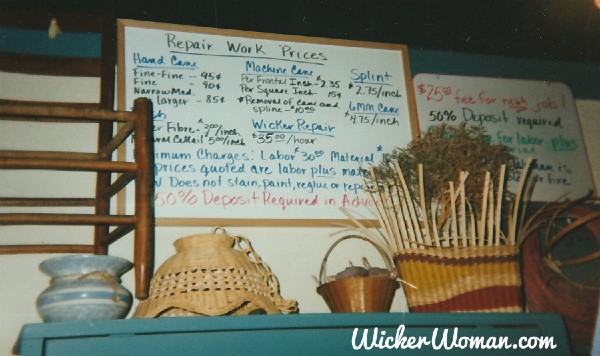 Repair Work Prices
Hand Cane
Fine-Fine — 95¢
Fine - 90¢
Narrow Med.
larger - 85¢
Machine Cane
Per Frontal Inch - 2.35
Per Square Inch 15¢
*Removal of cane and
spline - $10.00
Splint
$2.75/inch
6mm Cane
$4.75/inch
Fibre -
/inch
/inch
Wicker Repair
$35.00/hour
Charges: Labor $30.00 Material
prices quoted are labor plus
Does not stain, paint, reglue or
50% Deposit Required in
$25.00 fee for rush job!
50% Deposit required
for labor plus
is
or fire
WickerWoman.com